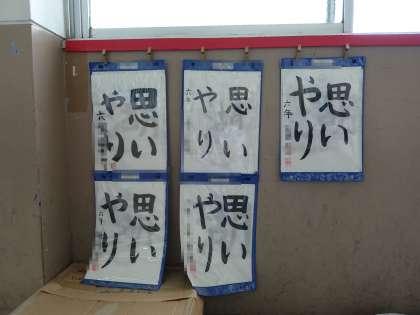 思い
やり
六年
思い
やり
六年
思い
やり
六
思い
やり
六年
思い
やり